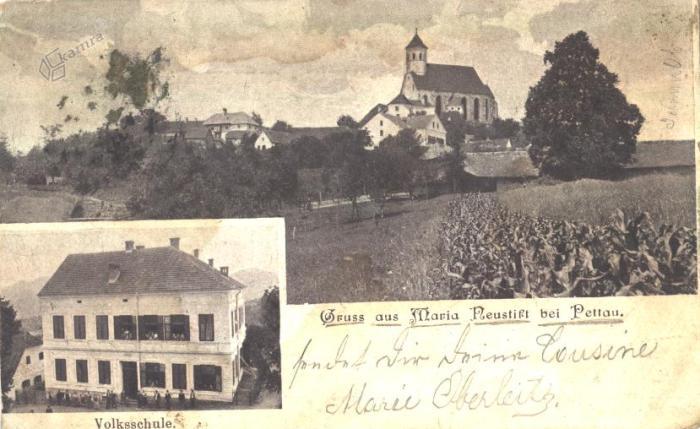 kamra
Gruss aus Maria Neustift bei Pettau.
sendet Dir Deine Cousine
Marie Oberleitz.
Volksschule.